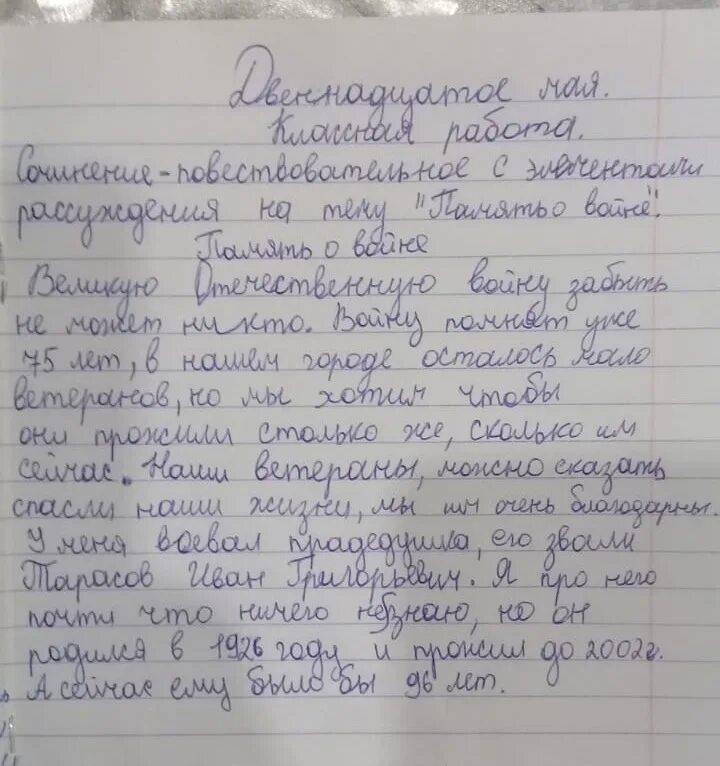 Двеннадцатое мая.
Классная работа.
Сочинение-повествовательное с элементами
рассуждения на тему "Память о войне".
Память о войне
Великую Отечественную войну забыть
не может никто. Войну помнят уже
75 лет, в нашем городе осталось мало
ветеранов, но мы хотим чтобы
они прожили столько же, сколько им
сейчас. Наши ветераны, можно сказать
спасли наши жизни, мы им очень благодарны.
У меня воевал прадедушка, его звали
Тарасов Иван Григорьевич. Я про него
почти что ничего не знаю, но он
родился в 1926 году и прожил до 2002г.
А сейчас ему было бы 96 лет.